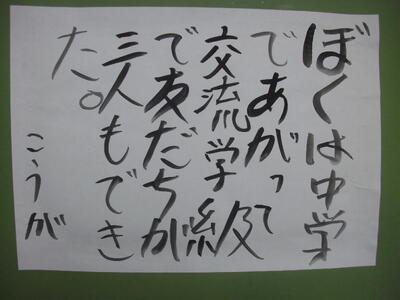 ぼくは中学
であがって
交流学級
で友だちが
三人もでき
た。
こうが